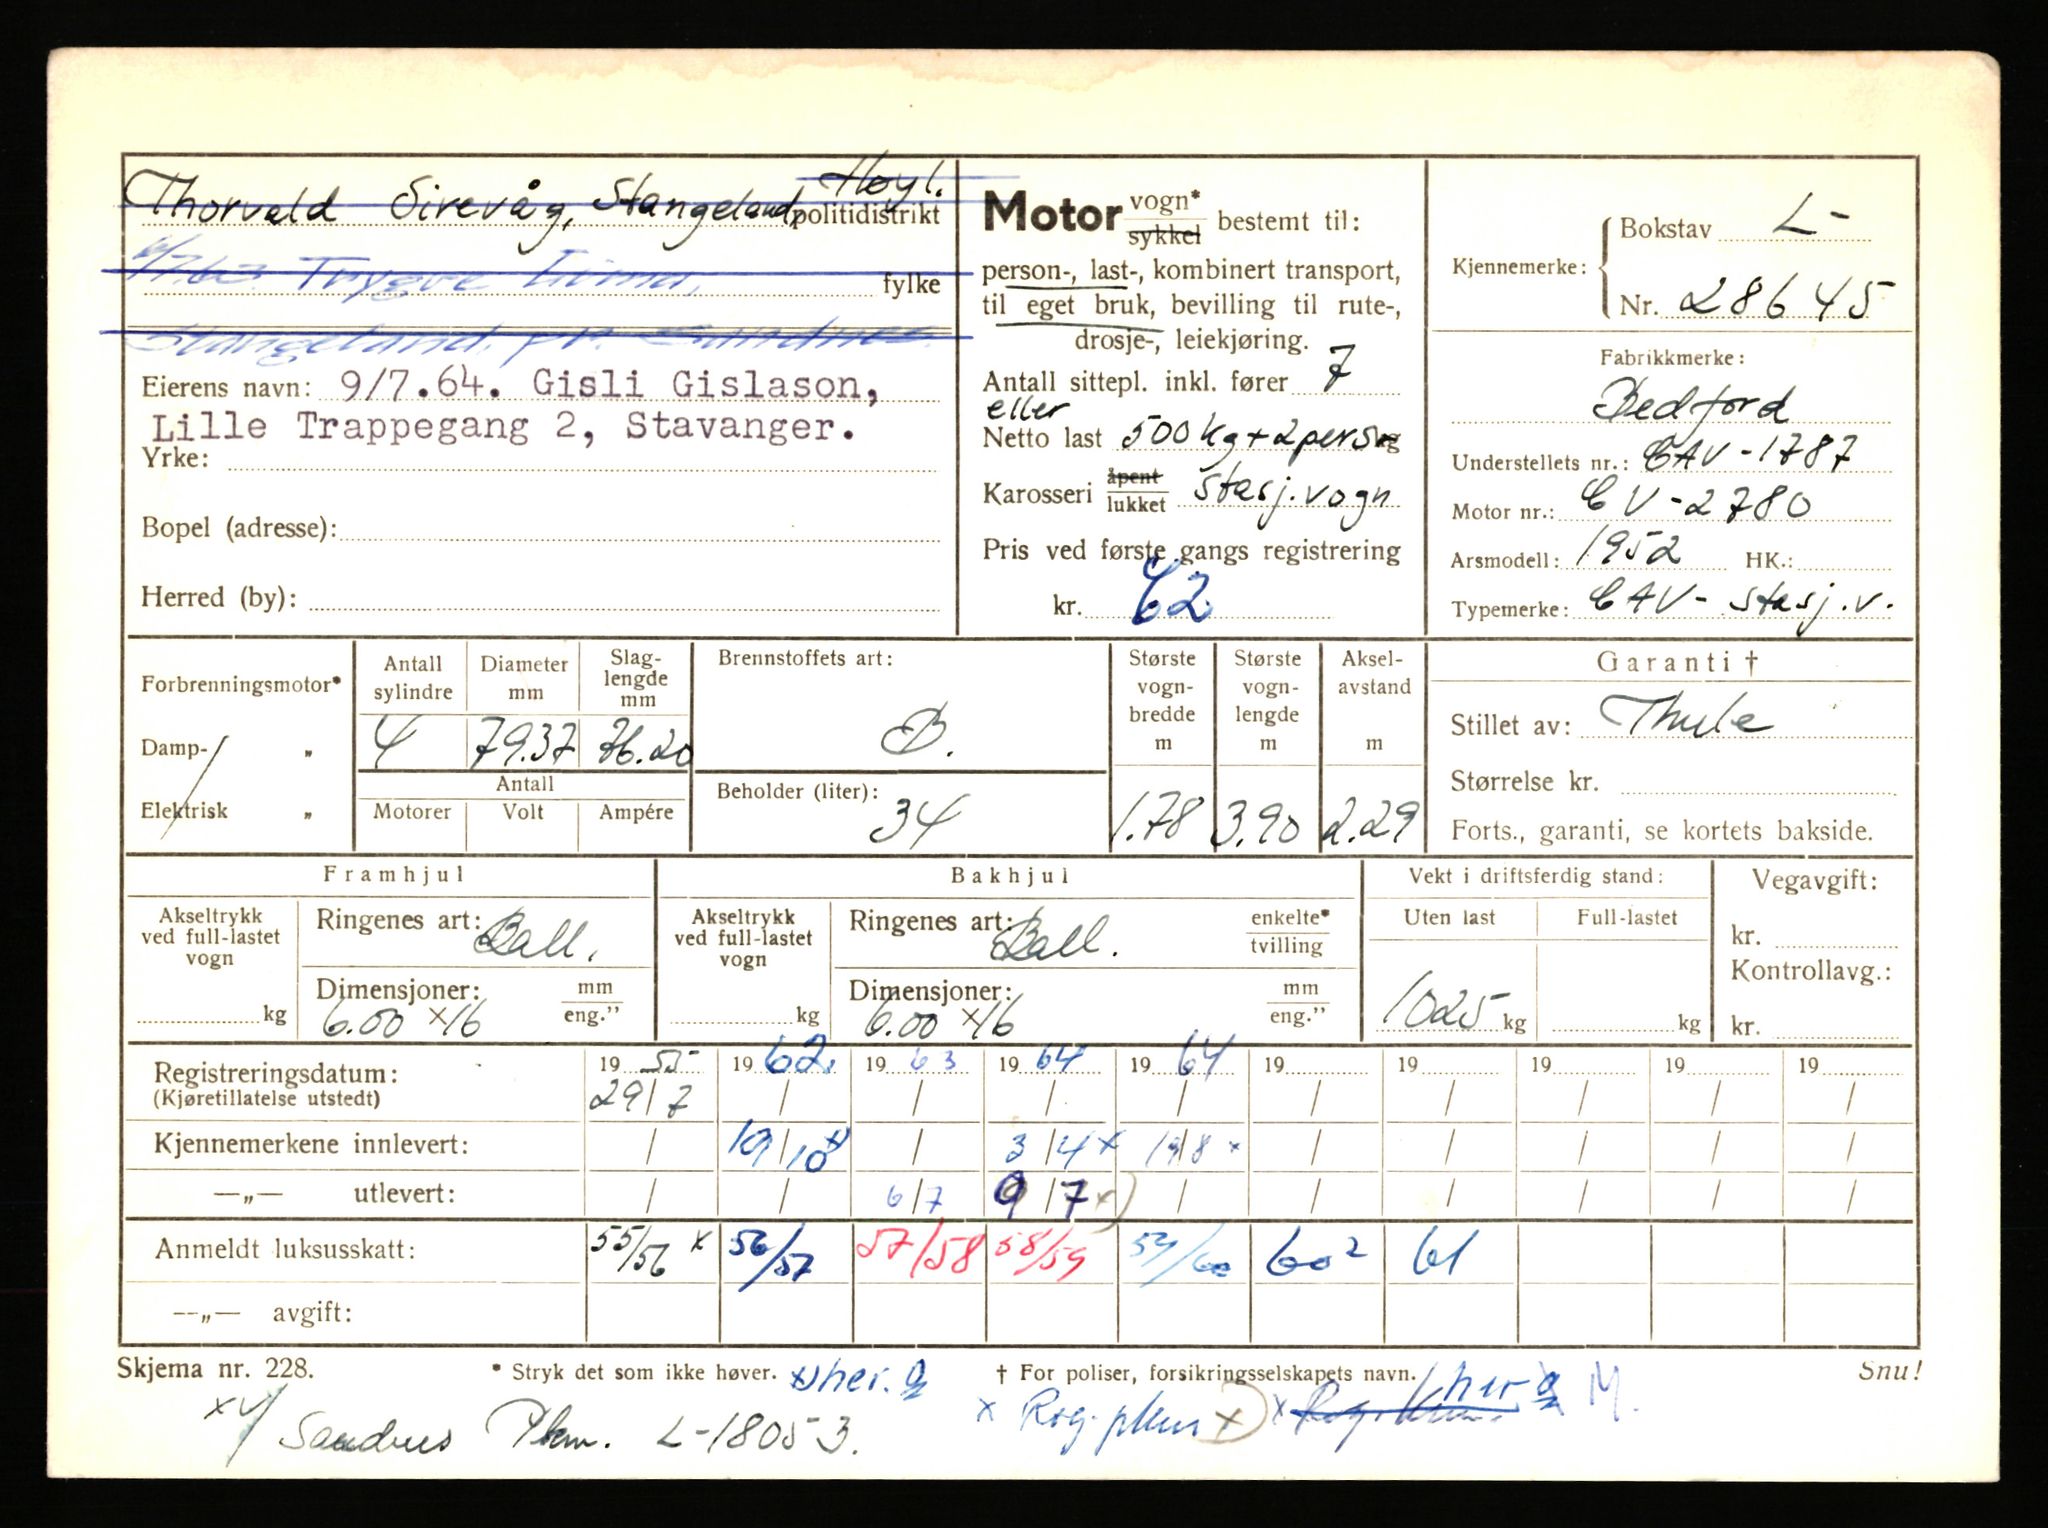 Thorvald Sirevåg, Stangeland, Høyl.
politidistrikt
6/7.63. Trygve Lima,
fylke
Stangeland, pr. Sandnes.
Eierens navn: 9/7.64. Gisli Gislason,
Lille Trappegang 2, Stavanger.
Yrke:
Bopel (adresse):
Herred (by):
Motor vogn* sykkel bestemt til:
person-, last-, kombinert transport,
til eget bruk, bevilling til rute-,
drosje-, leiekjøring.
Antall sittepl. inkl. fører 7
eller
Netto last 500 kg + 2 pers
Karosseri åpent lukket stasj.vogn
Pris ved første gangs registrering
kr. 62.
Kjennemerke:
Bokstav L-
Nr. 28645
Fabrikkmerke:
Bedford
Understellets nr.: CAV-1787
Motor nr.: CV-2780
Arsmodell: 1952 HK.:
Typemerke: CAV- stasj.v.
Forbrenningsmotor*
Damp- „
Elektrisk „
Antall sylindre Diameter mm Slag-lengde mm
4 79.37 76.20
Antall
Motorer Volt Ampére
Brennstoffets art:
B.
Beholder (liter):
34
Største vogn-bredde m Største vogn-lengde m Aksel-avstand m
1.78 3.90 2.29
Garanti †
Stillet av: Thule
Størrelse kr.
Forts., garanti, se kortets bakside.
Framhjul
Akseltrykk ved full-lastet vogn
kg
Ringenes art: Ball.
Dimensjoner: mm eng.”
6.00 x 16
Bakhjul
Akseltrykk ved full-lastet vogn
kg
Ringenes art: Ball. enkelte* tvilling
Dimensjoner: mm eng.”
6.00 x 16
Vekt i driftsferdig stand:
Uten last Full-lastet
1025 kg kg
Vegavgift:
kr.
Kontrollavg.:
kr.
Registreringsdatum: 19 55 19 62. 19 63 19 64 19 64 19 19 19 19 19
(Kjøretillatelse utstedt) 29/7 / / / / / / / / /
Kjennemerkene innlevert: / 19/10 x / 3/4 x 19/8 x / / / / /
—„— utlevert: / / 6/7 9/7 x) / / / / / /
Anmeldt luksusskatt: 55/56 x 56/57 57/58 58/59 59/60 60² 61
—„— avgift:
Skjema nr. 228. * Stryk det som ikke høver. x) her. † For poliser, forsikringsselskapets navn. her M. Snu!
x Sandnes Pkm. L-18053. x Rog. x) x